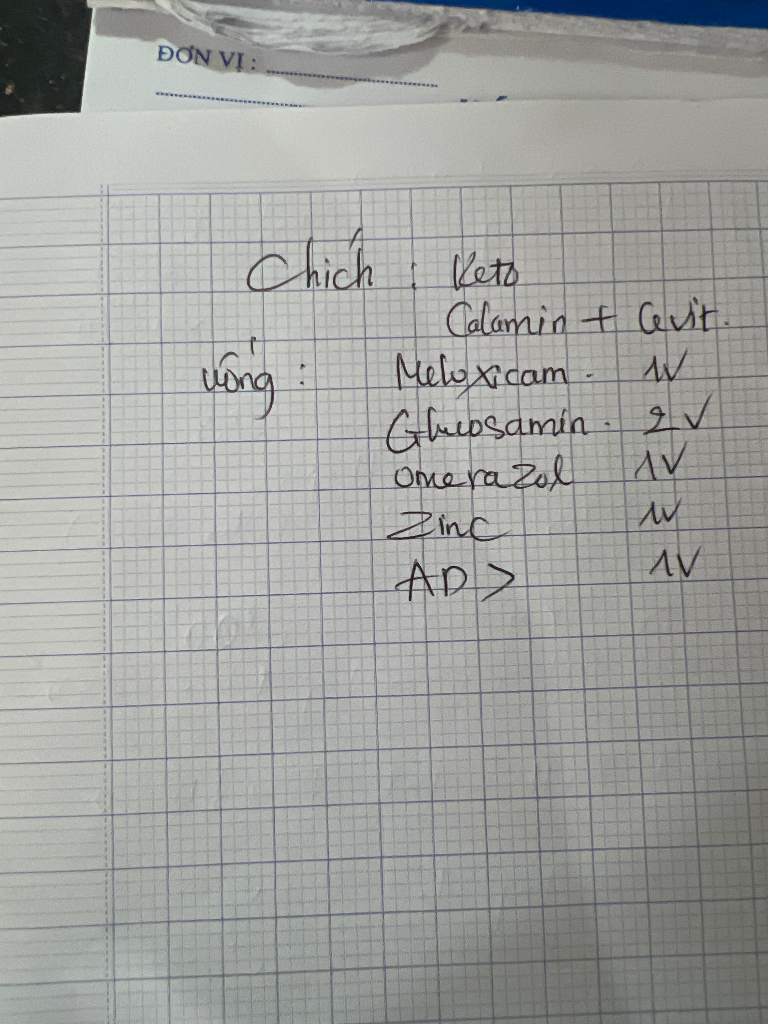 ĐƠN VỊ :
Chích : Keto
Calamin + Cevit.
Uống : Meloxicam . 1V
Glucosamin . 2V
Omerazol 1V
Zinc 1V
AD > 1V